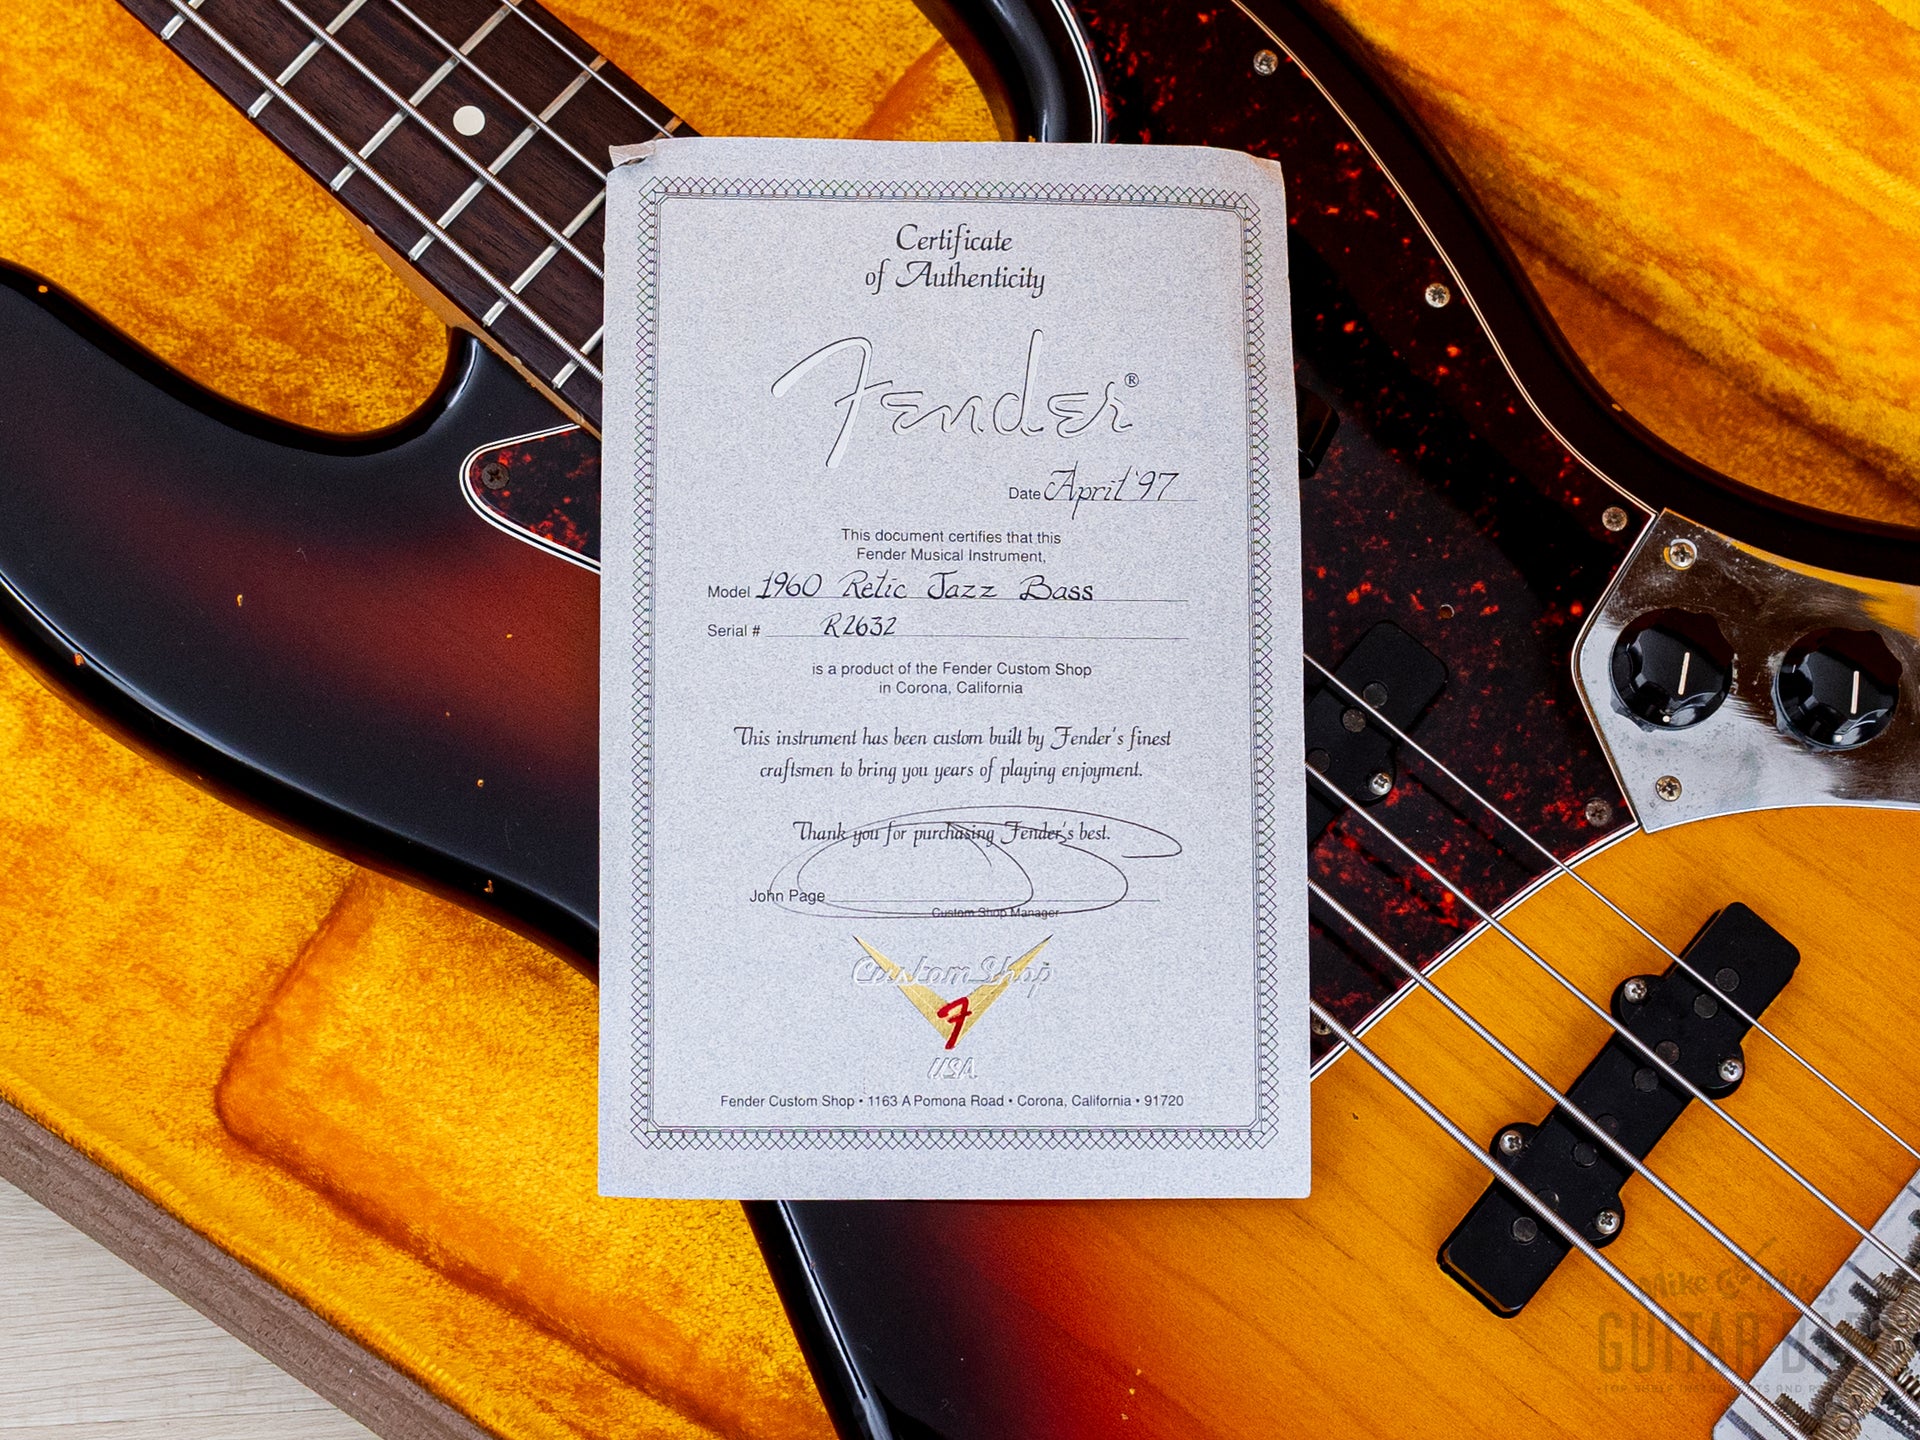 Certificate
of Authenticity
Fender®
Date April '97
This document certifies that this
Fender Musical Instrument,
Model 1960 Relic Jazz Bass
Serial # R2632
is a product of the Fender Custom Shop
in Corona, California
This instrument has been custom built by Fender's finest
craftsmen to bring you years of playing enjoyment.
Thank you for purchasing Fender's best.
John Page
Custom Shop Manager
Custom Shop
F
USA
Fender Custom Shop • 1163 A Pomona Road • Corona, California • 91720
Mike & Mike's
GUITAR BAR